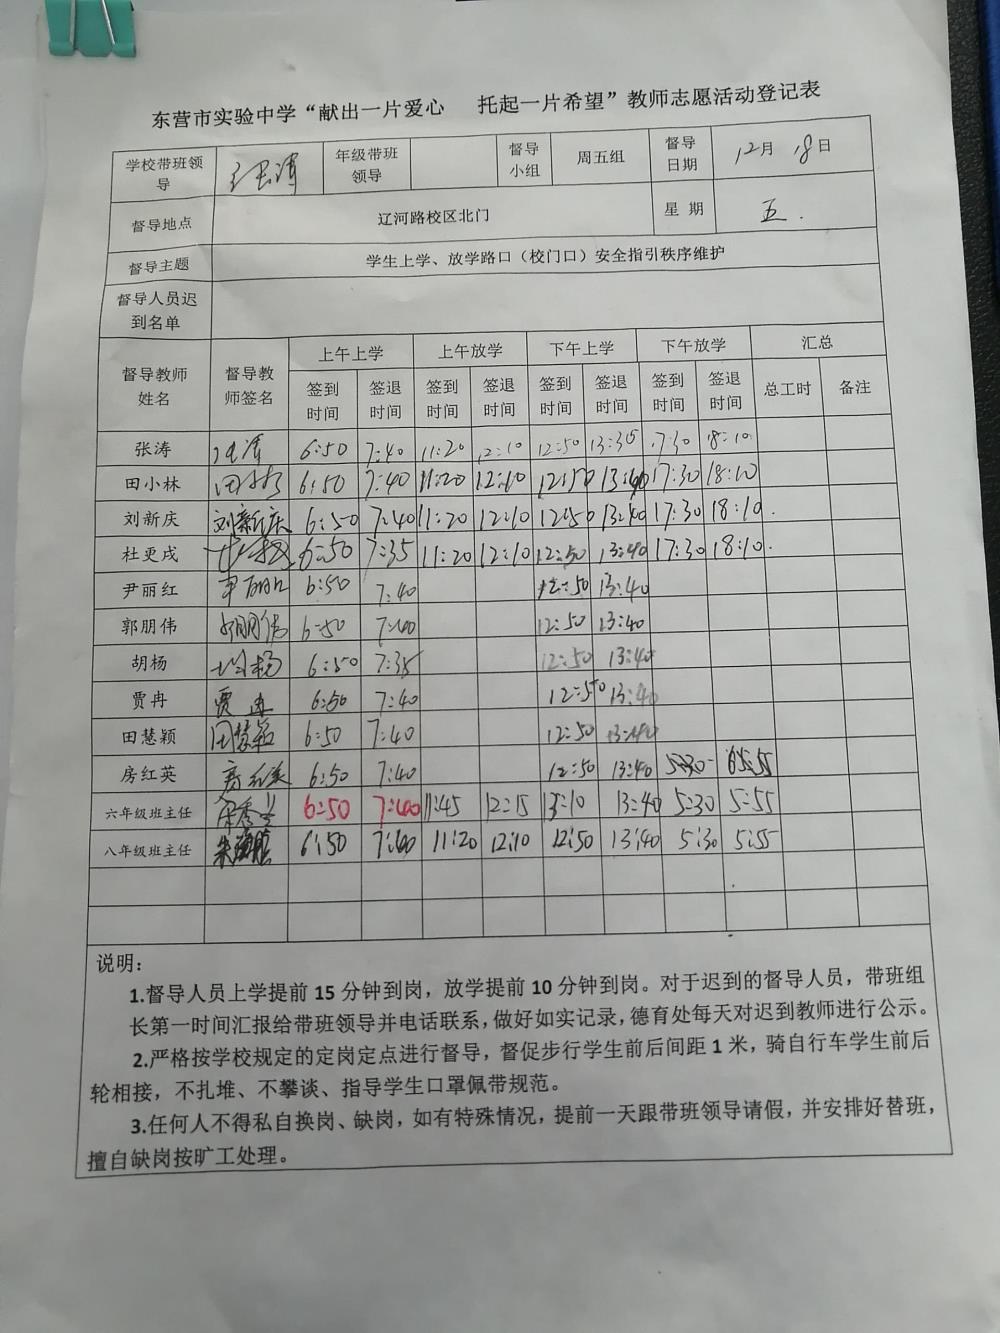 东营市实验中学“献出一片爱心 托起一片希望”教师志愿活动登记表
学校带班领导 年级带班领导 督导小组 周五组 督导日期 12月18日
督导地点 辽河路校区北门 星期 五.
督导主题 学生上学、放学路口（校门口）安全指引秩序维护
督导人员迟到名单
督导教师姓名 督导教师签名 上午上学 上午放学 下午上学 下午放学 汇总
签到时间 签退时间 签到时间 签退时间 签到时间 签退时间 签到时间 签退时间 总工时 备注
张涛 6:50 7:40 11:20 12:10 12:50 13:35 17:30 18:10
田小林 田小林 6:50 7:40 11:20 12:10 12:50 13:40 17:30 18:10
刘新庆 刘新庆 6:50 7:40 11:20 12:10 12:50 13:40 17:30 18:10.
杜更戌 6:50 7:35 11:20 12:10 12:50 13:40 17:30 18:10.
尹丽红 尹丽红 6:50 7:40 12:50 13:40
郭朋伟 郭朋伟 6:50 7:40 12:50 13:40
胡杨 胡杨 6:50 7:35 12:50 13:40
贾冉 贾冉 6:50 7:40 12:50 13:40
田慧颖 田慧颖 6:50 7:40 12:50 13:40
房红英 房红英 6:50 7:40 12:50 13:40 5:30 5:55
六年级班主任 6:50 7:40 11:45 12:15 13:10 13:40 5:30 5:55
八年级班主任 6:50 7:40 11:20 12:10 12:50 13:40 5:30 5:55
说明：
1.督导人员上学提前15分钟到岗，放学提前10分钟到岗。对于迟到的督导人员，带班组
长第一时间汇报给带班领导并电话联系，做好如实记录，德育处每天对迟到教师进行公示。
2.严格按学校规定的定岗定点进行督导，督促步行学生前后间距1米，骑自行车学生前后
轮相接，不扎堆、不攀谈、指导学生口罩佩带规范。
3.任何人不得私自换岗、缺岗，如有特殊情况，提前一天跟带班领导请假，并安排好替班，
擅自缺岗按旷工处理。